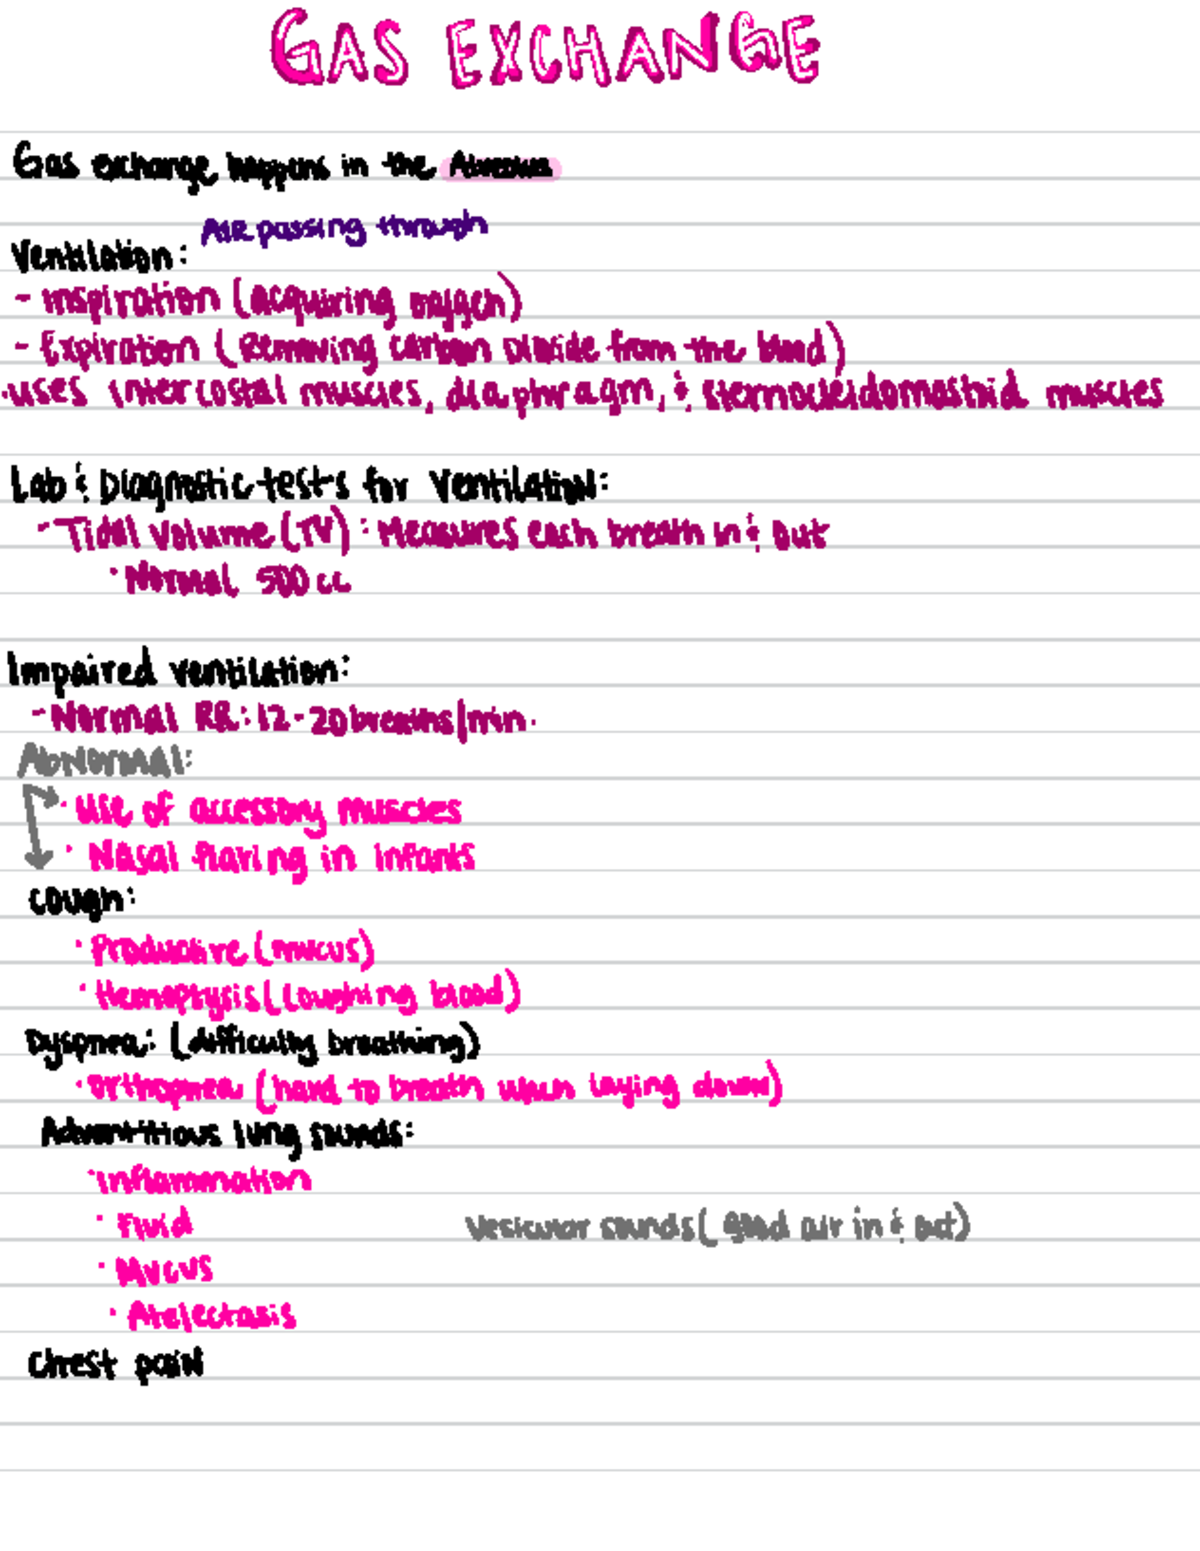 GAS EXCHANGE
Gas exchange happens in the Alveolus
Air passing through
Ventilation:
- inspiration (acquiring oxygen)
- Expiration (Removing carbon Dioxide from the blood)
·uses intercostal muscles, diaphragm, & sternocleidomastoid muscles
Lab & Diagnostic tests for Ventilation:
- Tidal Volume (TV): Measures each breath in & out
· Normal 500 cc
Impaired ventilation:
- Normal RR: 12-20 breaths/min.
Abnormal:
· Use of accessory muscles
· Nasal flaring in infants
cough:
· Productive (mucus)
· Hemoptysis (coughing blood)
Dyspnea: (difficulty breathing)
· Orthopnea (hard to breath when laying down)
Adventitious lung sounds:
· Inflammation
· Fluid
Vesicular sounds (good air in & out)
· Mucus
· Atelectasis
Chest pain